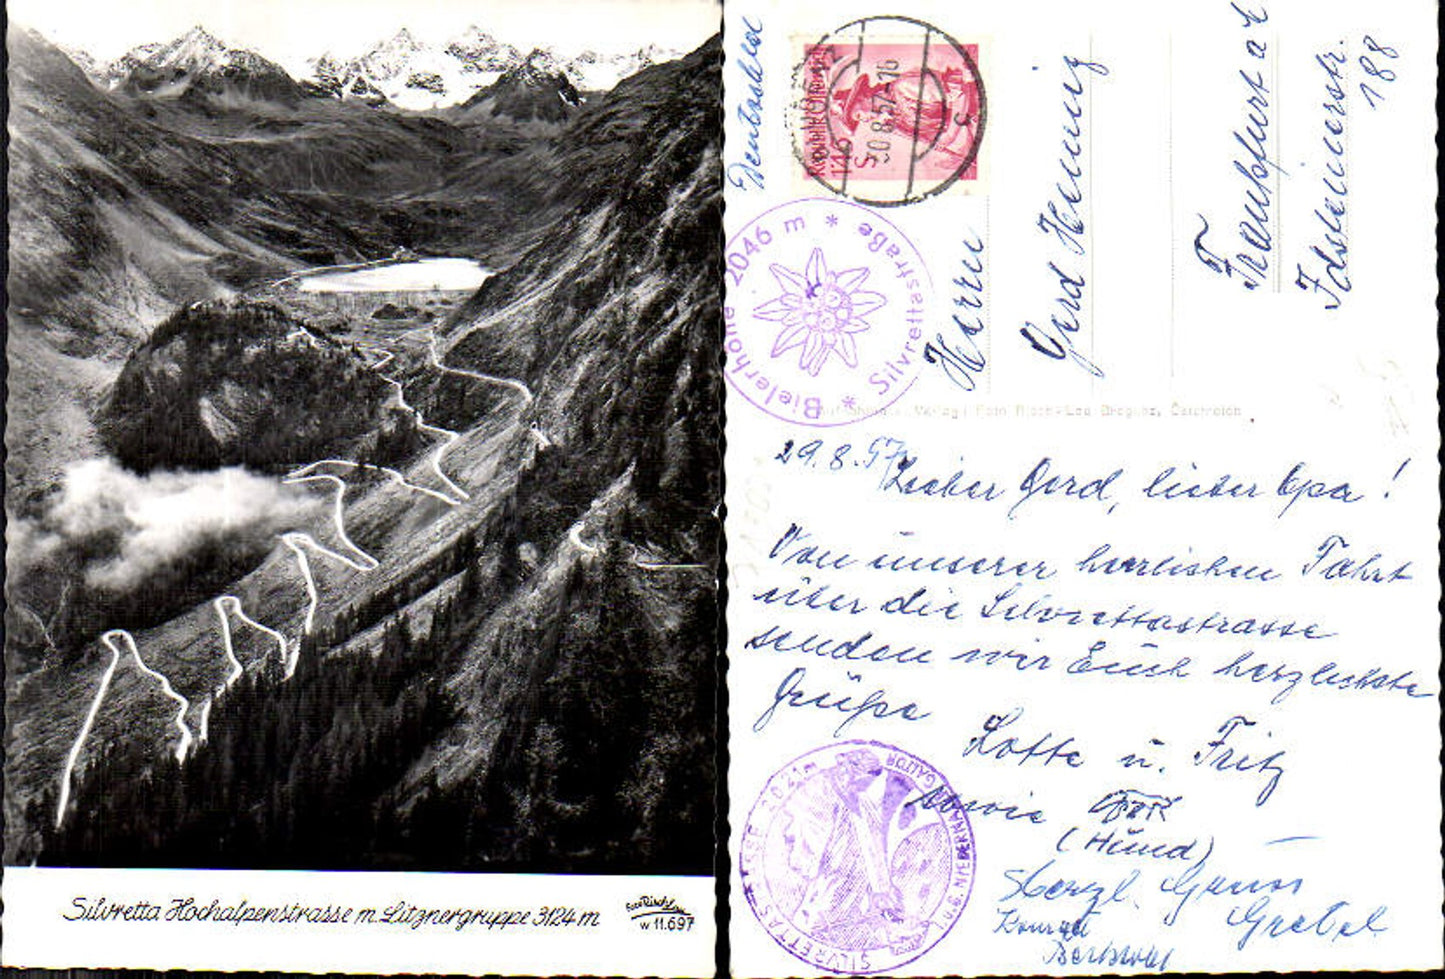 Silvretta Hochalpenstrasse m. Litznergruppe 3124 m
w 11.697
Deutschland
Republik Österreich
1.45
S
30.8.57-16
c
Bielerhöhe 2046 m * Silvrettastraße *
Herrn
Gerd Hennig
Frankfurt a/
Idsteinerstr.
188
Verlag: Foto Risch-Lau, Bregenz, Österreich
29.8.57
Lieber Gerd, lieber Opa!
Von unserer herrlichen Fahrt
über die Silvrettastrasse
senden wir Euch herzlichste
Grüße
Lotte u. Fritz
sowie
(Hund)
Herzl. Grüss
Gretel
Konrad
Berthold
SILVRETTASEE 2021 m